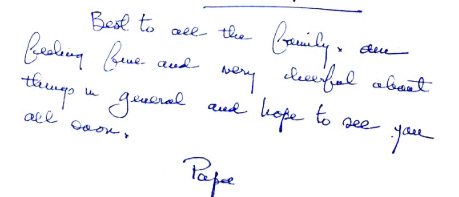 Best to all the family. am
feeling fine and very cheerful about
things in general and hope to see you
all soon.
Papa